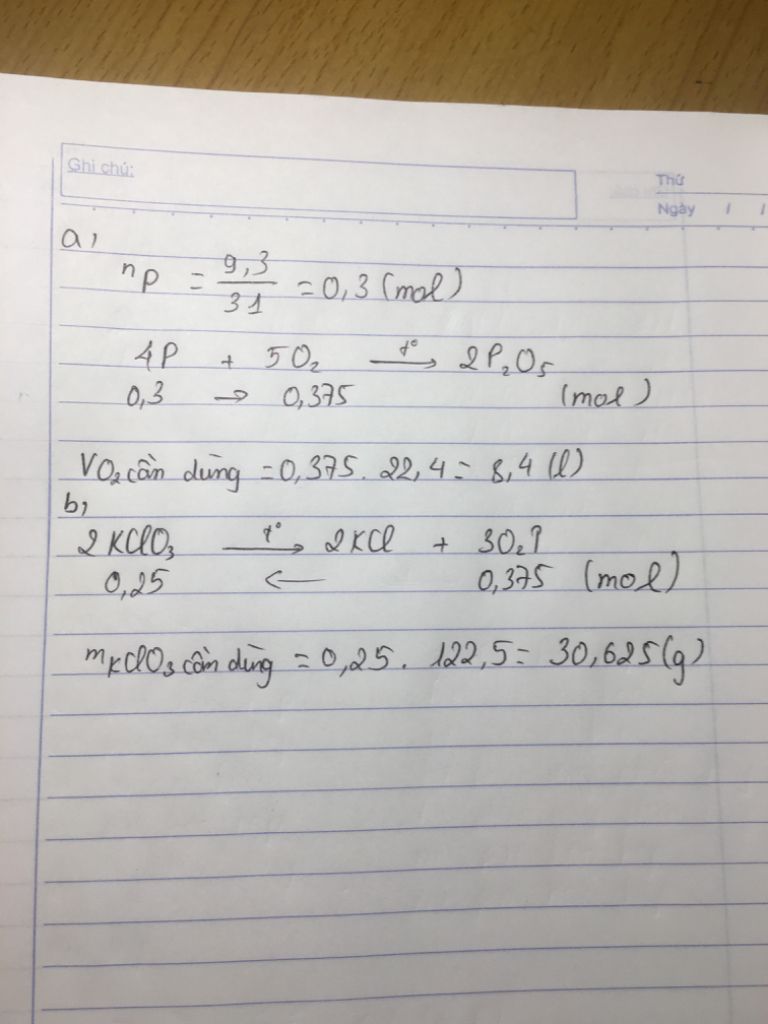 Ghi chú:
Thứ
Ngày / /
a,
nP = 9,3/31 = 0,3 (mol)
4P + 5O₂ —t°→ 2P₂O₅
0,3 → 0,375 (mol)
VO₂ cần dùng = 0,375. 22,4 = 8,4 (l)
b,
2KClO₃ —t°→ 2KCl + 3O₂↑
0,25 ← 0,375 (mol)
mKClO₃ cần dùng = 0,25. 122,5 = 30,625 (g)